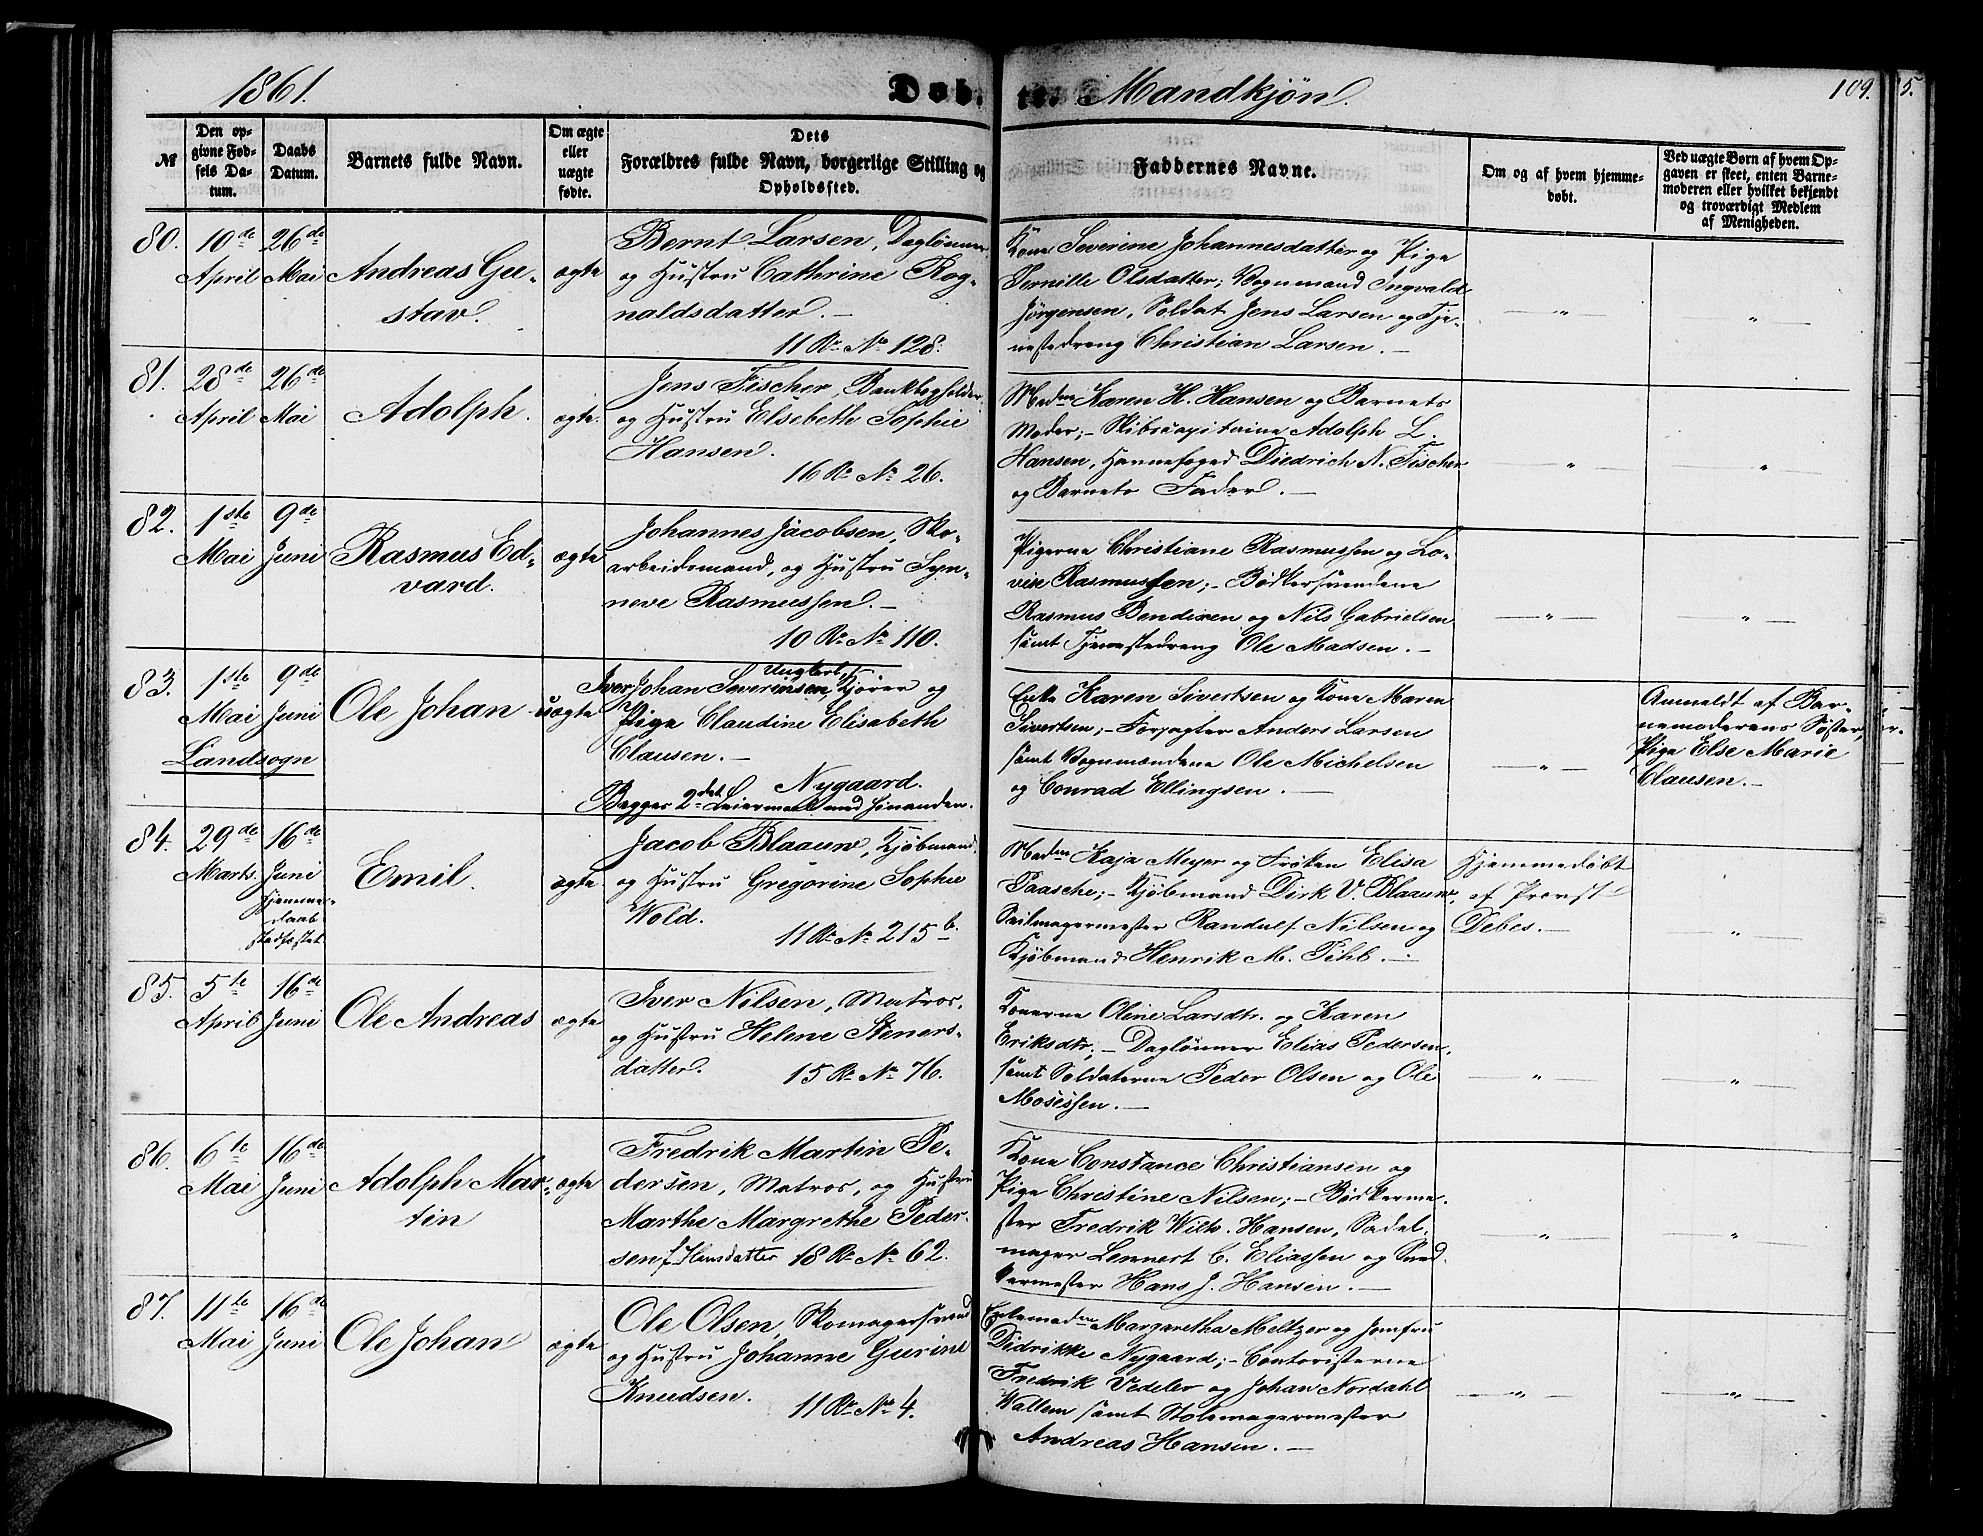 1861.
Døb-
te. Mandkjøn.
109.
5.
№
Den op-
givne Fød-
sels Da-
tum.
Daabs
Datum.
Barnets fulde Navn.
Om ægte
eller
uægte
fødte.
Dets
Forældres fulde Navn, borgerlige Stilling og
Opholdssted.
Faddernes Navne.
Om og af hvem hjemme-
døbt.
Ved uægte Børn af hvem Op-
gaven er skeet, enten Barne-
moderen eller hvilket bekjendt
og troværdigt Medlem
af Menigheden.
80.
10de
April
26de
Mai
Andreas Gu-
stav.
ægte
Bernt Larsen, Daglønner
og Hustru Cathrine Rog-
naldsdatter. —
11 Re No 128.
Kone Severine Johannesdatter og Pige
Pernille Olsdatter; Vognmand Ingvald
Jørgensen, Soldat Jens Larsen og Tje-
nestedreng Christian Larsen. —
— " —
"
81.
28de
April
26de
Mai
Adolph.
ægte.
Jens Fischer, Bankbogholder,
og Hustru Elsebeth Sophie
Hansen.
16 Re No 26.
Madme Karen H. Hansen og Barnets
Moder; – Skibscapitaine Adolph L.
Hansen, Havnefoged Diedrich N. Fischer
og Barnets Fader. —
— " —
"
82.
1ste
Mai
9de
Juni
Rasmus Ed-
vard.
ægte
Johannes Jacobsen, Sko-
arbeidsmand, og Hustru Syn-
neve Rasmussen. —
10 Re No 110.
Pigerne Christiane Rasmussen og Lo-
vise Rasmussen; – Bødkersvendene
Rasmus Bendixen og Nils Gabrielsen
samt Tjenestedreng Ole Madsen. —
— " —
— " —
83.
1ste
Mai
9de
Juni
Landsogn
Ole Johan
uægte
Ungkarl
Iver Johan Severinsen, Kjører og
Pige Claudine Elisabeth
Clausen. —
Nygaard.
Begges 2det Leiermaal med hinanden.
Enke Karen Sivertsen og Kone Maren
Sivertsen; – Forpagter Anders Larsen
samt Vognmændene Ole Michelsen
og Conrad Ellingsen. —
— " —
Anmeldt af Bar-
nemoderens Søster,
Pige Else Marie
Clausen. —
84.
29de
Marts.
16de
Juni
Hjemme-
daab
stadfæstet.
Emil.
ægte
Jacob Blaauw, Kjøbmand,
og Hustru Gregorine Sophie
Wold.
11 Re No 215 b.
Madme Kaja Meyer og Frøken Elisa
Paasche; – Kjøbmand Dirk V. Blaauw,
Seilmagermester Randulf Nilsen og
Kjøbmand Henrik M. Pihl. —
Hjemmedøbt
af Provst
Debes. —
"
85.
5te
April
16de
Juni
Ole Andreas
ægte
Iver Nilsen, Matros,
og Hustru Helene Steners-
datter.
15 Re No 76.
Konerne Oline Larsdtr. og Karen
Eriksdtr; – Daglønner Elias Pedersen,
samt Soldaterne Peder Olsen og Ole
Mosessen. —
"
— " —
86.
6te
Mai
16de
Juni
Adolph Mar-
tin
ægte
Fredrik Martin Pe-
dersen, Matros, og Hustru
Marthe Margrethe Peder-
sen f. Hansdatter 18 Re No 62.
Kone Constance Christiansen og
Pige Christine Nilsen; – Bødkerme-
ster Fredrik Wilh. Hansen, Sadel-
mager Lennert C. Eliassen og Sned-
kermester Hans J. Hansen. —
— " —
— " —
87.
11te
Mai
16de
Juni
Ole Johan
ægte
Ole Olsen, Skomagersvend
og Hustru Johanne Gurine
Knudsen.
11 Re No 4.
Enkemadme Margaretha Meltzer og Jomfru
Didrikke Nygaard; – Contoristerne
Fredrik Vedeler og Johan Nordahl
Wallem samt Stolemagermester
Andreas Hansen. —
— " —
— " —